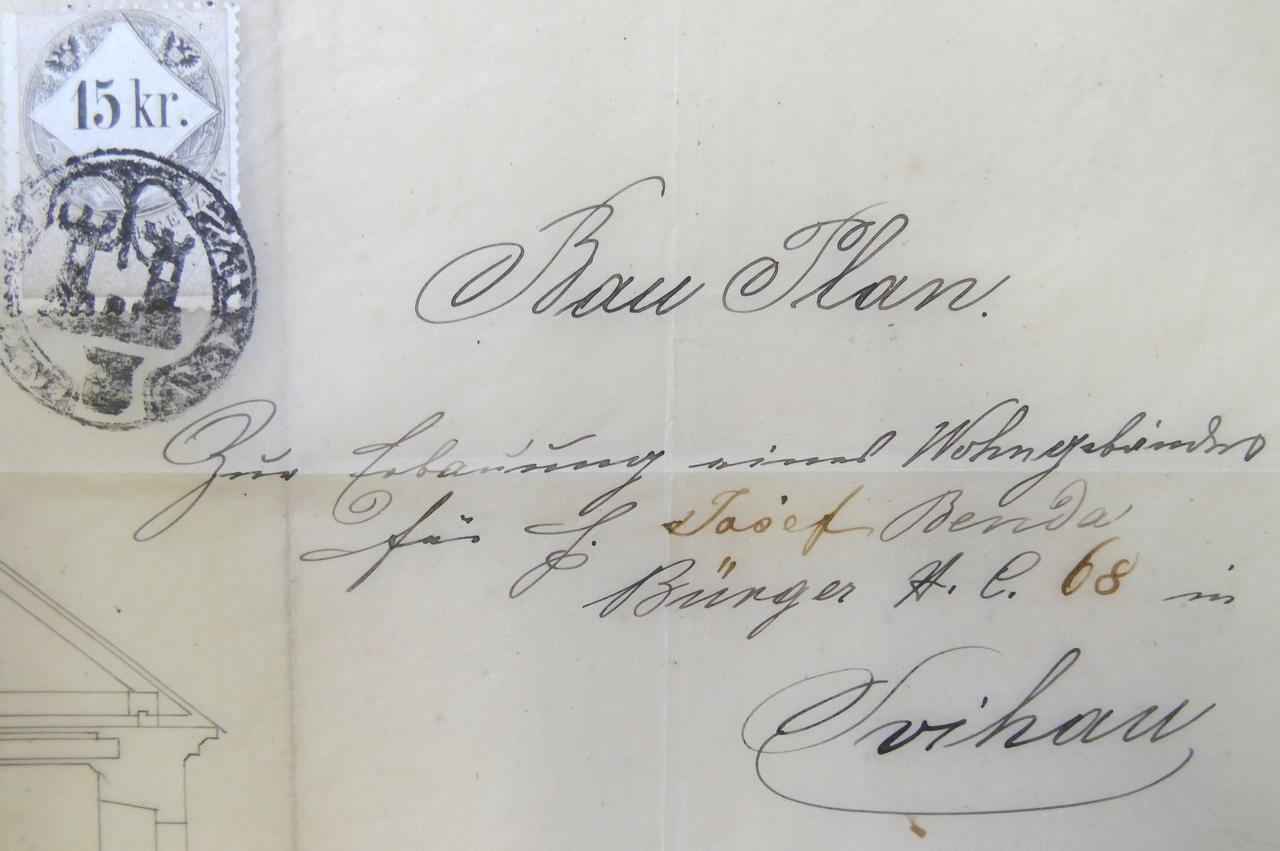 15 kr.
Bau Plan.
Zur Erbauung eines Wohngebäudes
für H. Josef Benda
Bürger N. C. 68 in
Svihau